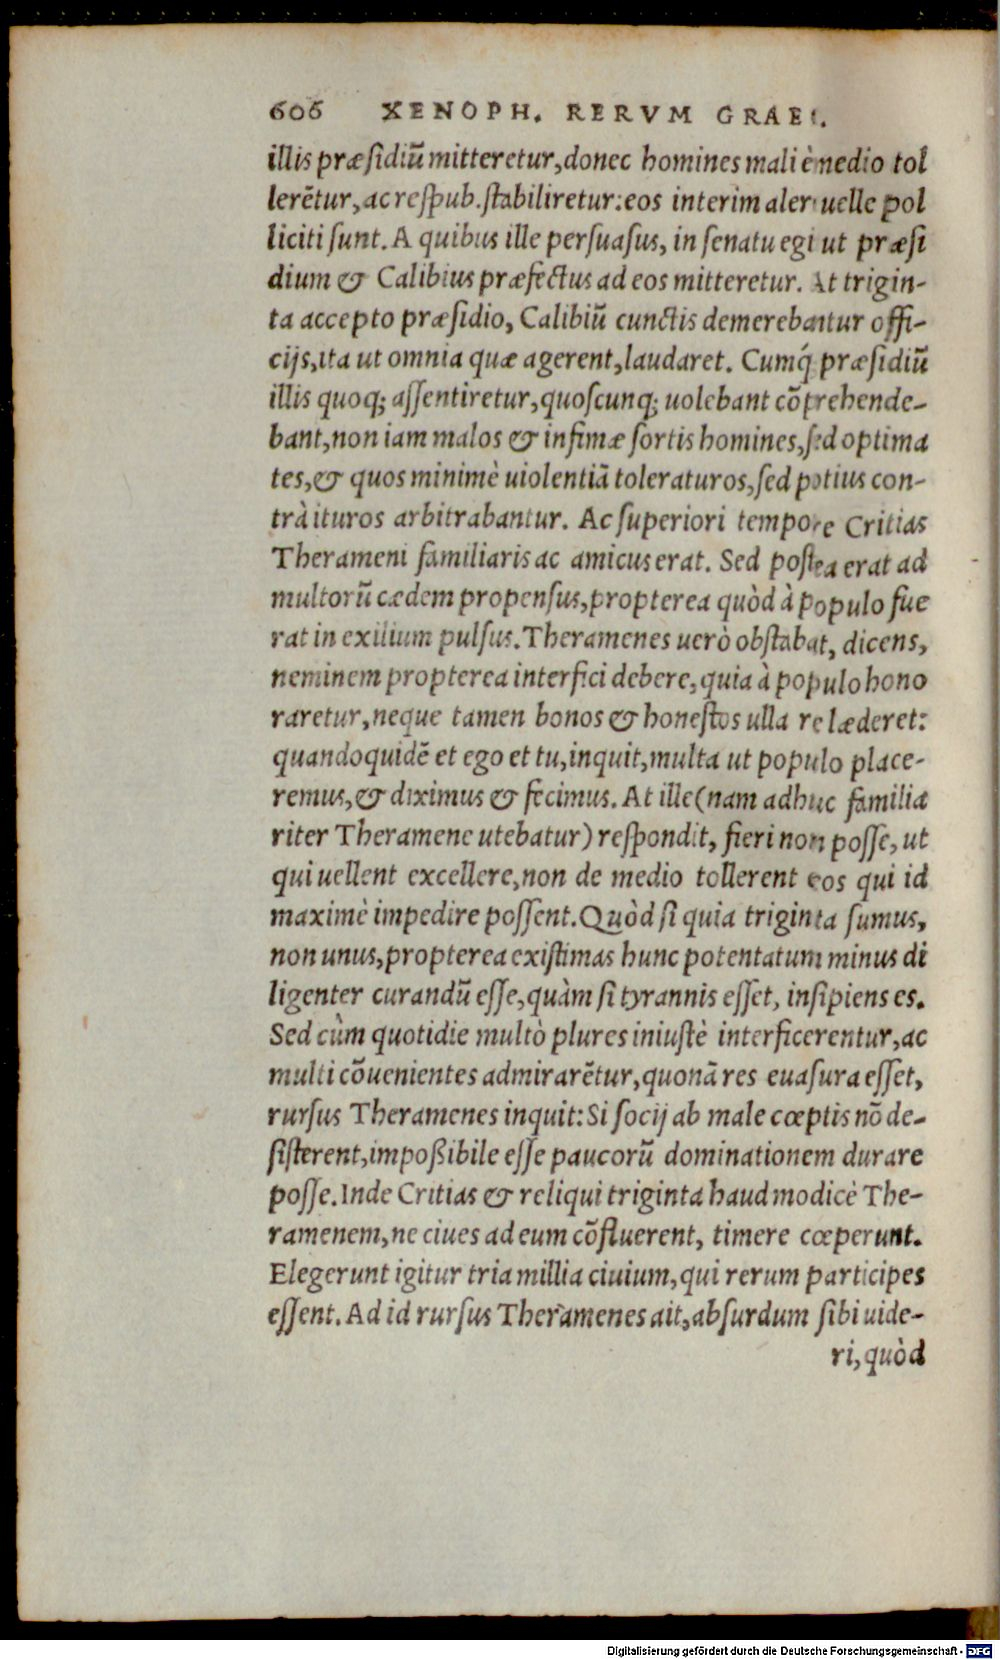 606 XENOPH. RERVM GRAEC.
illis præsidiũ mitteretur, donec homines mali è medio tol
lerẽtur, ac respub. stabiliretur: eos interim alere uelle pol
liciti sunt. A quibus ille persuasus, in senatu egit ut præsi
dium & Calibius præfectus ad eos mitteretur. At trigin-
ta accepto præsidio, Calibiũ cunctis demerebantur offi-
cijs, ita ut omnia quæ agerent, laudaret. Cumq́; præsidiũ
illis quoq; assentiretur, quoscunq; uolebant cõprehende-
bant, non iam malos & infimæ sortis homines, sed optima
tes, & quos minimè uiolentiã toleraturos, sed potius con-
trà ituros arbitrabantur. Ac superiori tempore Critias
Therameni familiaris ac amicus erat. Sed postea erat ad
multorũ cædem propensus, propterea quòd à populo fue
rat in exilium pulsus. Theramenes uerò obstabat, dicens,
neminem propterea interfici debere, quia à populo hono
raretur, neque tamen bonos & honestos ulla re læderet:
quandoquidẽ et ego et tu, inquit, multa ut populo place-
remus, & diximus & fecimus. At ille (nam adhuc familia
riter Theramene utebatur) respondit, fieri non posse, ut
qui uellent excellere, non de medio tollerent eos qui id
maximè impedire possent. Quòd si quia triginta sumus,
non unus, propterea existimas hunc potentatum minus di
ligenter curandũ esse, quàm si tyrannis esset, insipiens es.
Sed cùm quotidie multò plures iniustè interficerentur, ac
multi cõuenientes admirarẽtur, quonã res euasura esset,
rursus Theramenes inquit: Si socij ab male cœptis nõ de-
sisterent, impoßibile esse paucorũ dominationem durare
posse. Inde Critias & reliqui triginta haud modicè The-
ramenem, ne ciues ad eum cõfluerent, timere cœperunt.
Elegerunt igitur tria millia ciuium, qui rerum participes
essent. Ad id rursus Theramenes ait, absurdum sibi uide-
ri, quòd
Digitalisierung gefördert durch die Deutsche Forschungsgemeinschaft - DFG